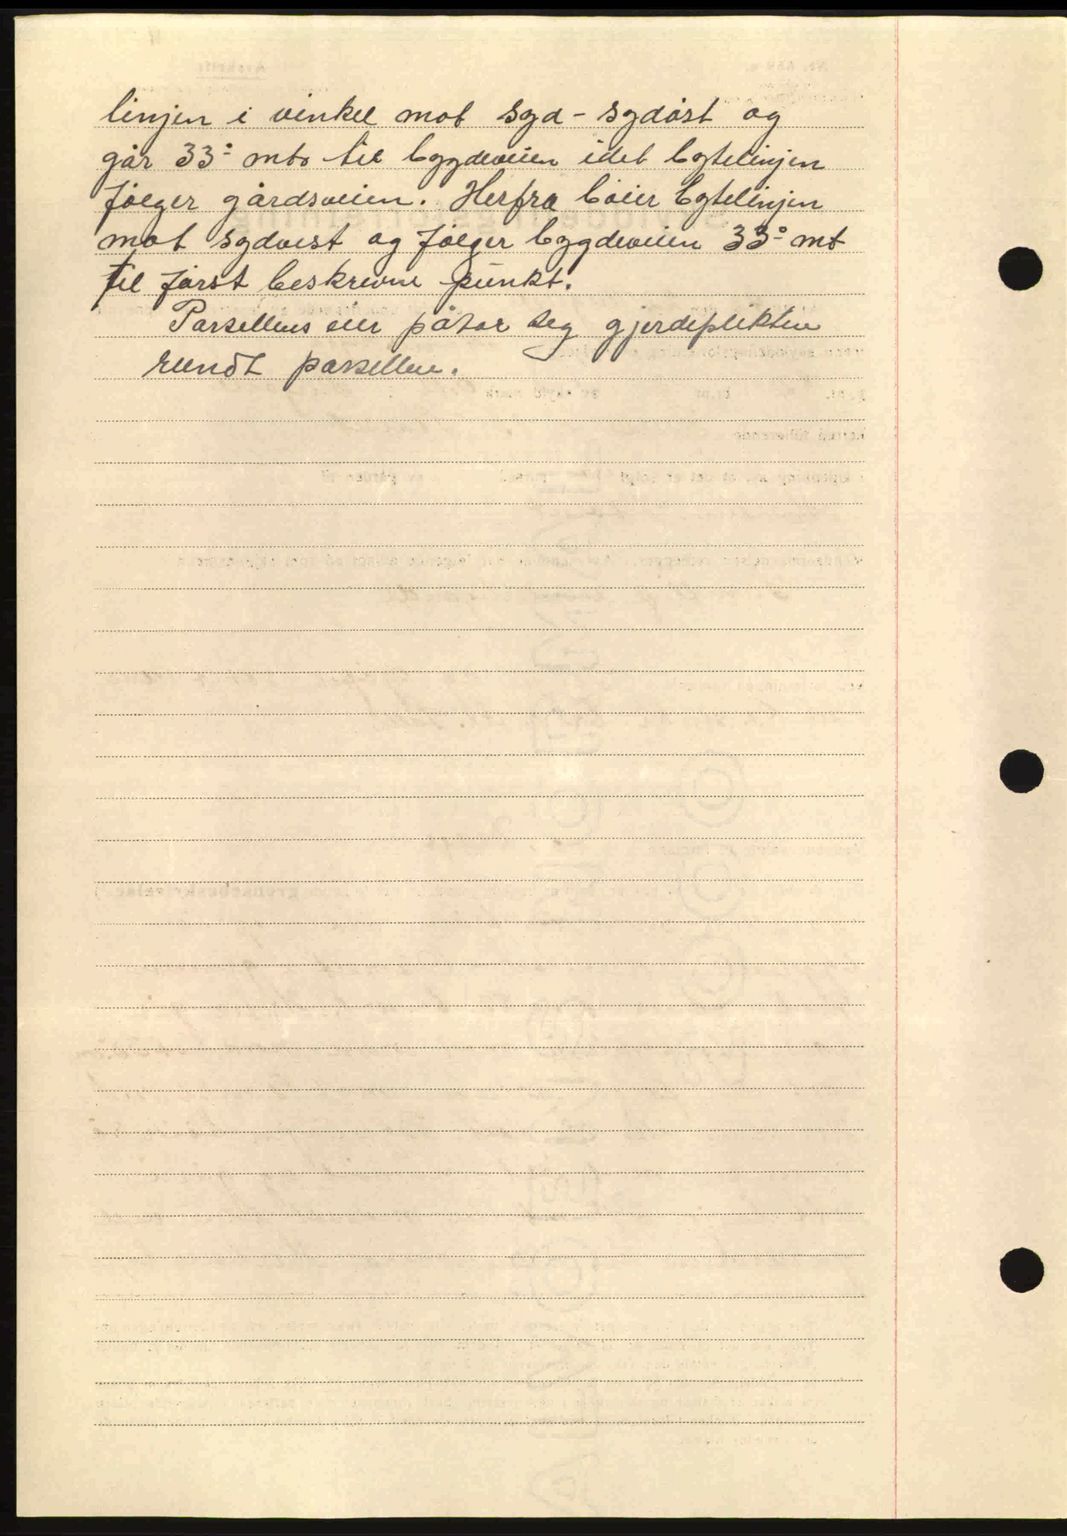 linjen i vinkel mot syd - sydøst og
går 33° mtr til bygdeveien idet bytelinjen
følger gårdsveien. Herfra bøier bytelinjen
mot sydvest og følger bygdeveien 33° mt
til først beskrevne punkt.
Parsellens eier påtar seg gjerdeplikten
rundt parsellen.